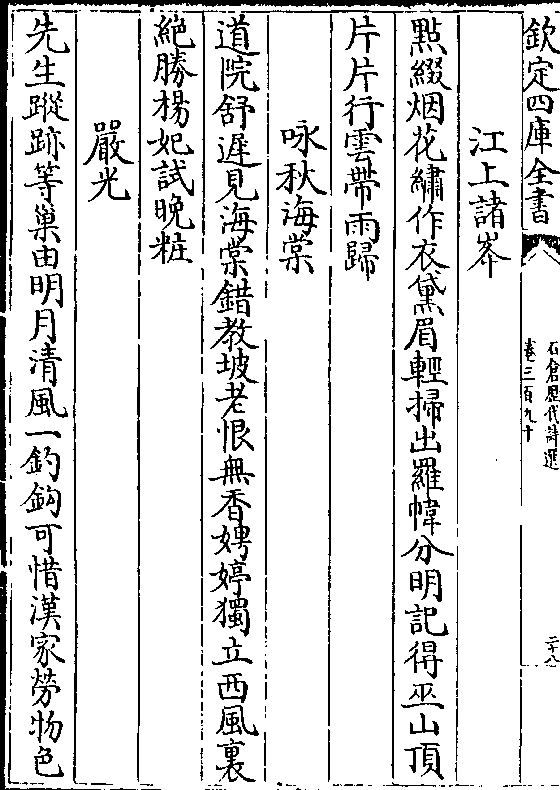 欽定四庫全書
石倉歷代詩選
卷三百九十
二十八
江上諸峯
點綴烟花繡作衣黛眉輕掃出羅幃分明記得巫山頂
片片行雲帶雨歸
咏秋海棠
道院舒遲見海棠錯教坡老恨無香娉婷獨立西風裏
絶勝楊妃試晚粧
嚴光
先生蹤跡等巢由明月清風一釣鈎可惜漢家勞物色